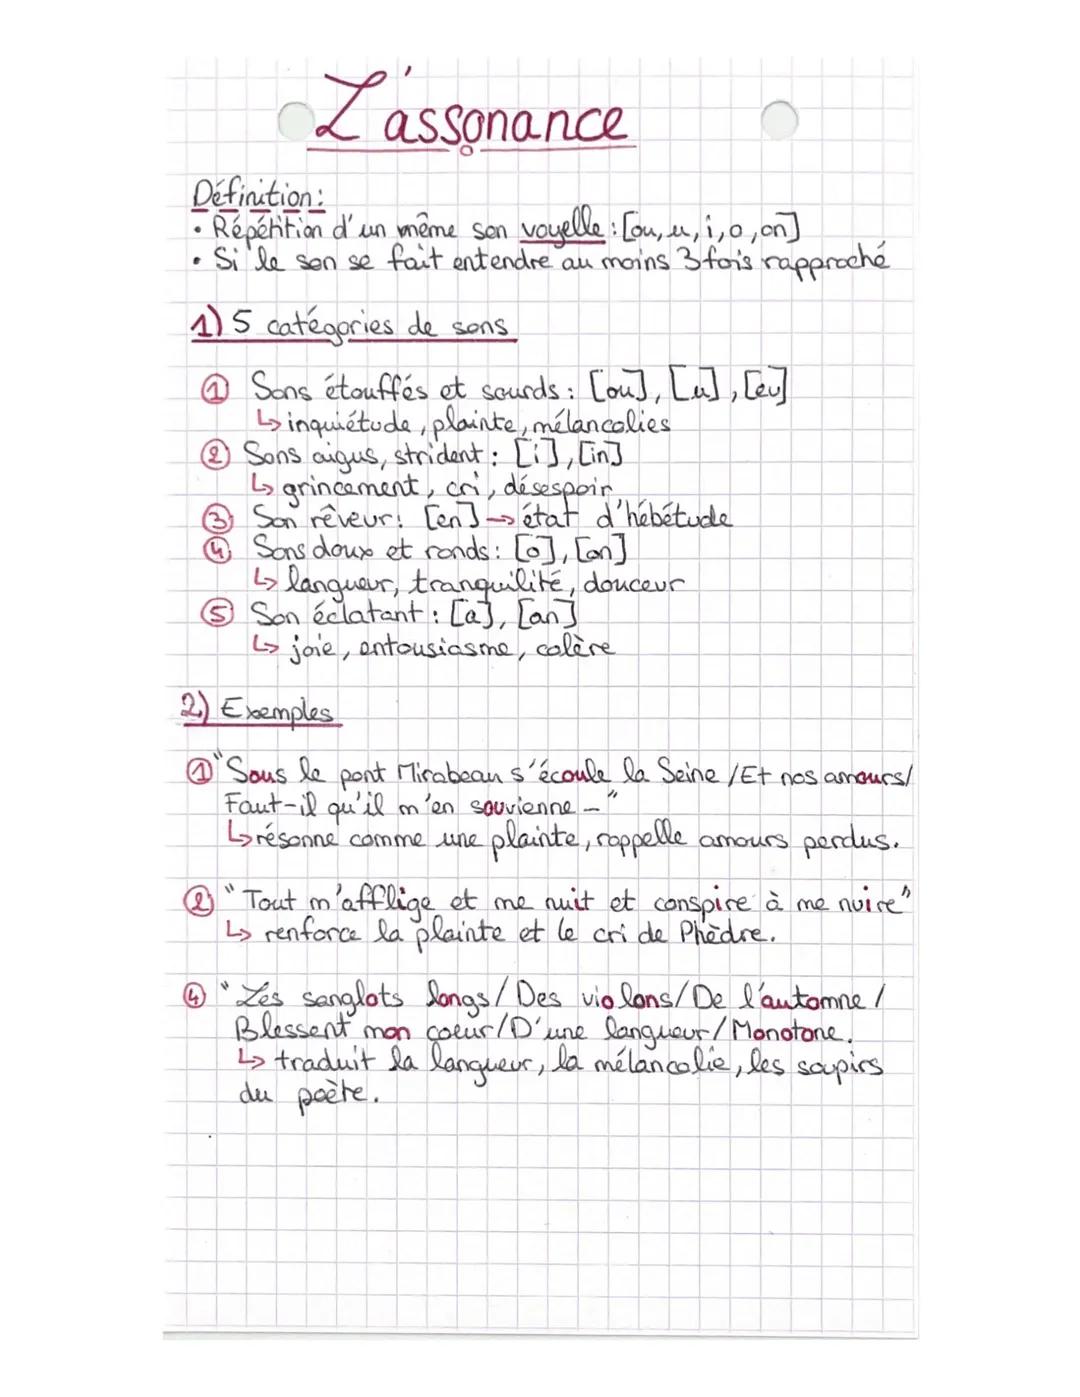 L'assonance
Définition:
• Répétition d'un même son voyelle: [ou, u, i, o, on]
• Si le son se fait entendre au moins 3 fois rapproché
1) 5 catégories de sons
① Sons étouffés et sourds: [ou], [u], [eu]
↳ inquiétude, plainte, mélancolies
② Sons aigus, strident: [i], [in]
↳ grincement, cri, désespoir
③ Son rêveur: [en] → état d'hébétude
④ Sons doux et ronds: [o], [on]
↳ langueur, tranquilité, douceur
⑤ Son éclatant: [a], [an]
↳ joie, entousiasme, colère
2) Exemples
① "Sous le pont Mirabeau s'écoule la Seine / Et nos amours/
Faut-il qu'il m'en souvienne -"
↳ résonne comme une plainte, rappelle amours perdus.
② "Tout m'afflige et me nuit et conspire à me nuire"
↳ renforce la plainte et le cri de Phèdre.
④ "Les sanglots longs/ Des violons/ De l'automne /
Blessent mon coeur/ D'une langueur/ Monotone.
↳ traduit la langueur, la mélancolie, les soupirs
du poète.